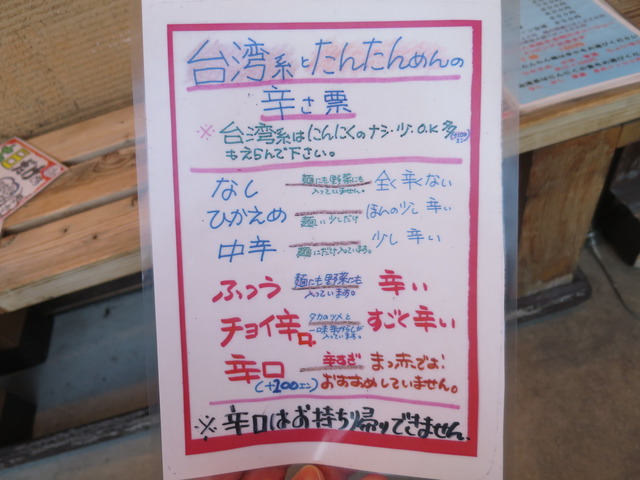 台湾系とたんたんめんの
辛さ票
※台湾系はにんにくのナシ・少・O.K 多
もえらんで下さい。
なし 麺にも野菜にも入っていません。 全く辛くない
ひかえめ 麺に少しだけ ほんの少し辛い
中辛 麺にだけ入っています。 少し辛い
ふつう 麺にも野菜にも入っています。 辛い
チョイ辛口 タカのツメと一味辛がらしが入っています。 すごく辛い
辛口 辛すぎ まっ赤でよ!
(+200エン) おすすめしていません。
※辛口はお持ち帰りできません.